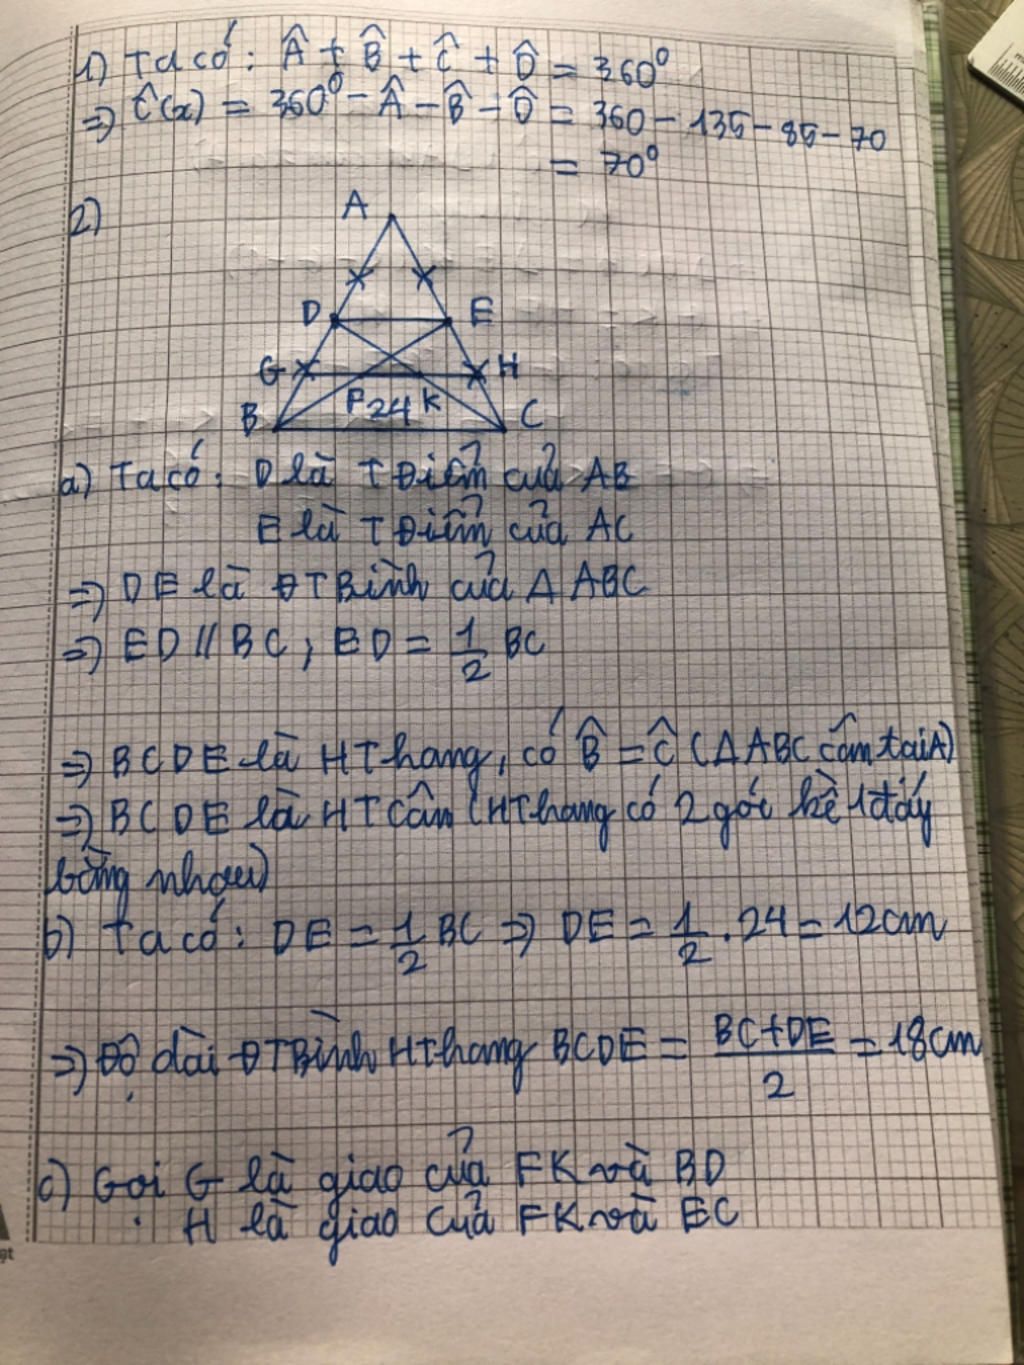 1) Ta có: Â + B̂ + Ĉ + D̂ = 360⁰
=> Ĉ(x) = 360⁰ - Â - B̂ - D̂ = 360 - 135 - 85 - 70
= 70⁰
2)
A
D E
G H
F 24 K
B C
a) Ta có: D là TĐiểm của AB
E là TĐiểm của AC
=> DE là ĐTBình của Δ ABC
=> ED // BC ; ED = 1/2 BC
=> BCDE là HThang, có B̂ = Ĉ (Δ ABC cân tại A)
=> BCDE là HTCân (HThang có 2 góc kề 1 đáy
bằng nhau)
b) Ta có: DE = 1/2 BC => DE = 1/2 . 24 = 12cm
=> Độ dài ĐTBình HThang BCDE = BC+DE/2 = 18cm
c) Gọi G là giao của FK và BD
H là giao của FK và EC